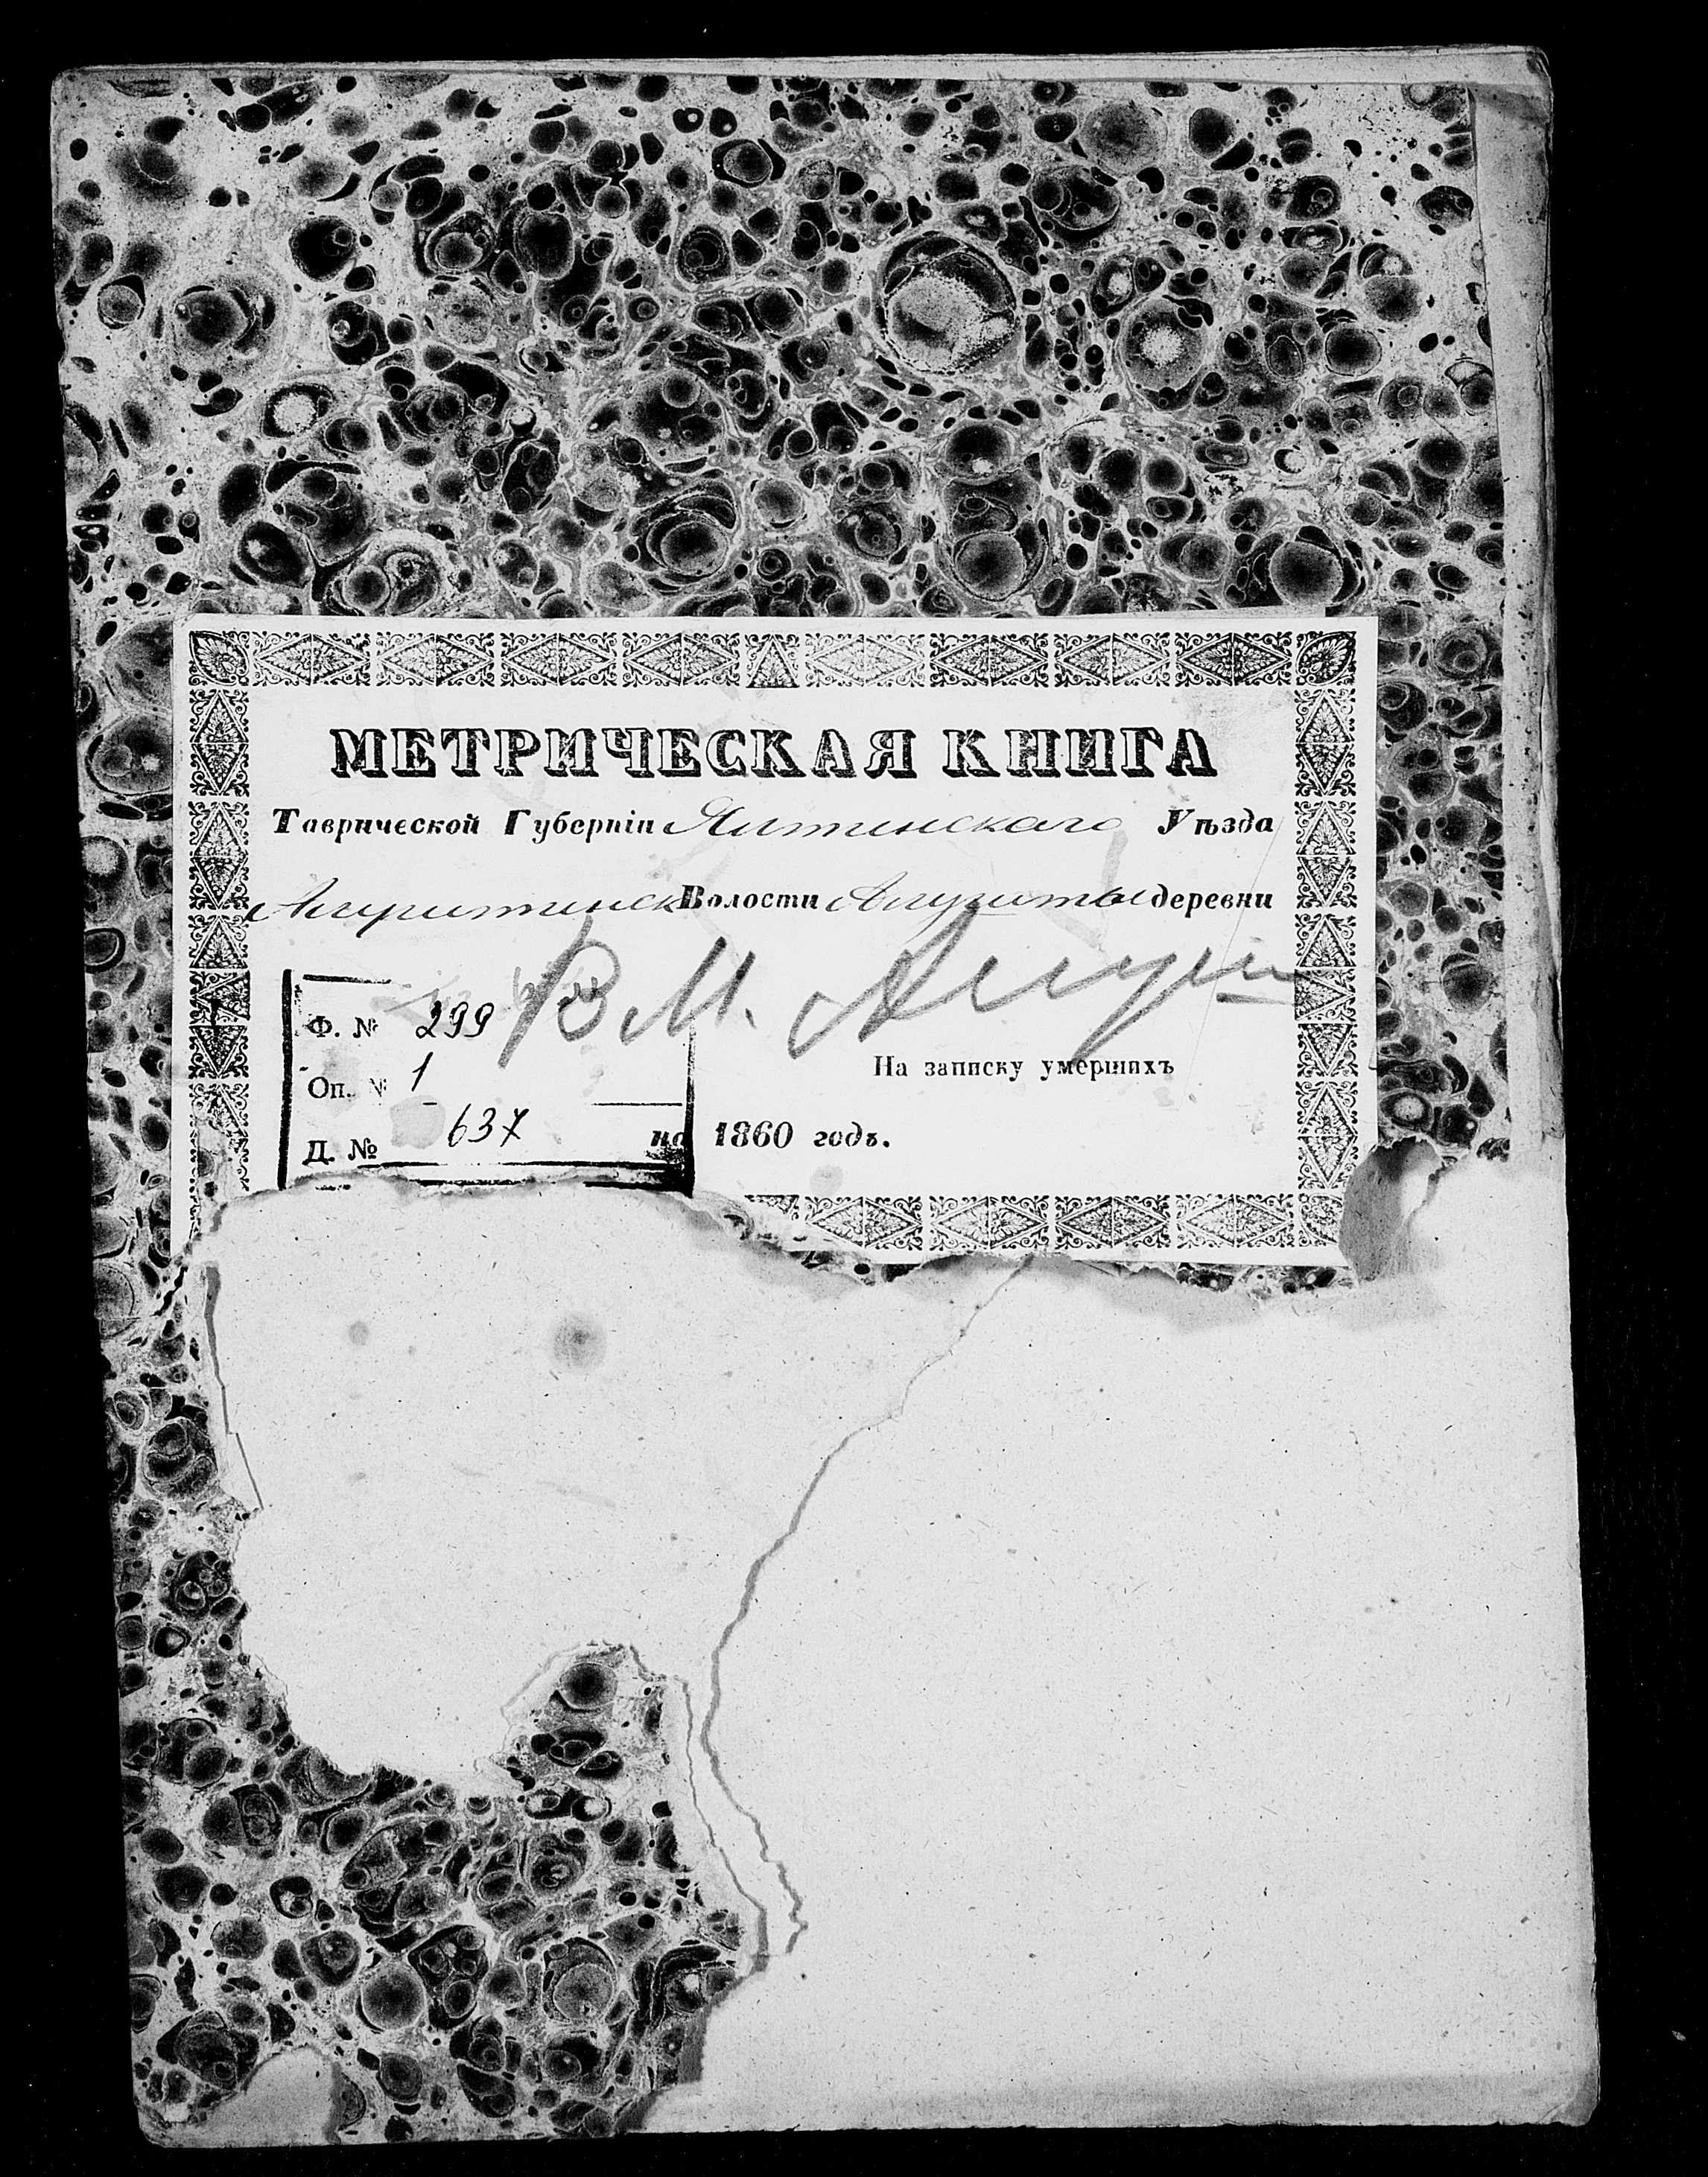 МЕТРИЧЕСКАЯ КНИГА
Таврической Губерніи Ялтинскаго Уѣзда
Алуштинск Волости Алушты деревни
В М. Алуш
Ф. № 299
На записку умершихъ
Оп. № 1
Д. № 637
на 1860 годъ.